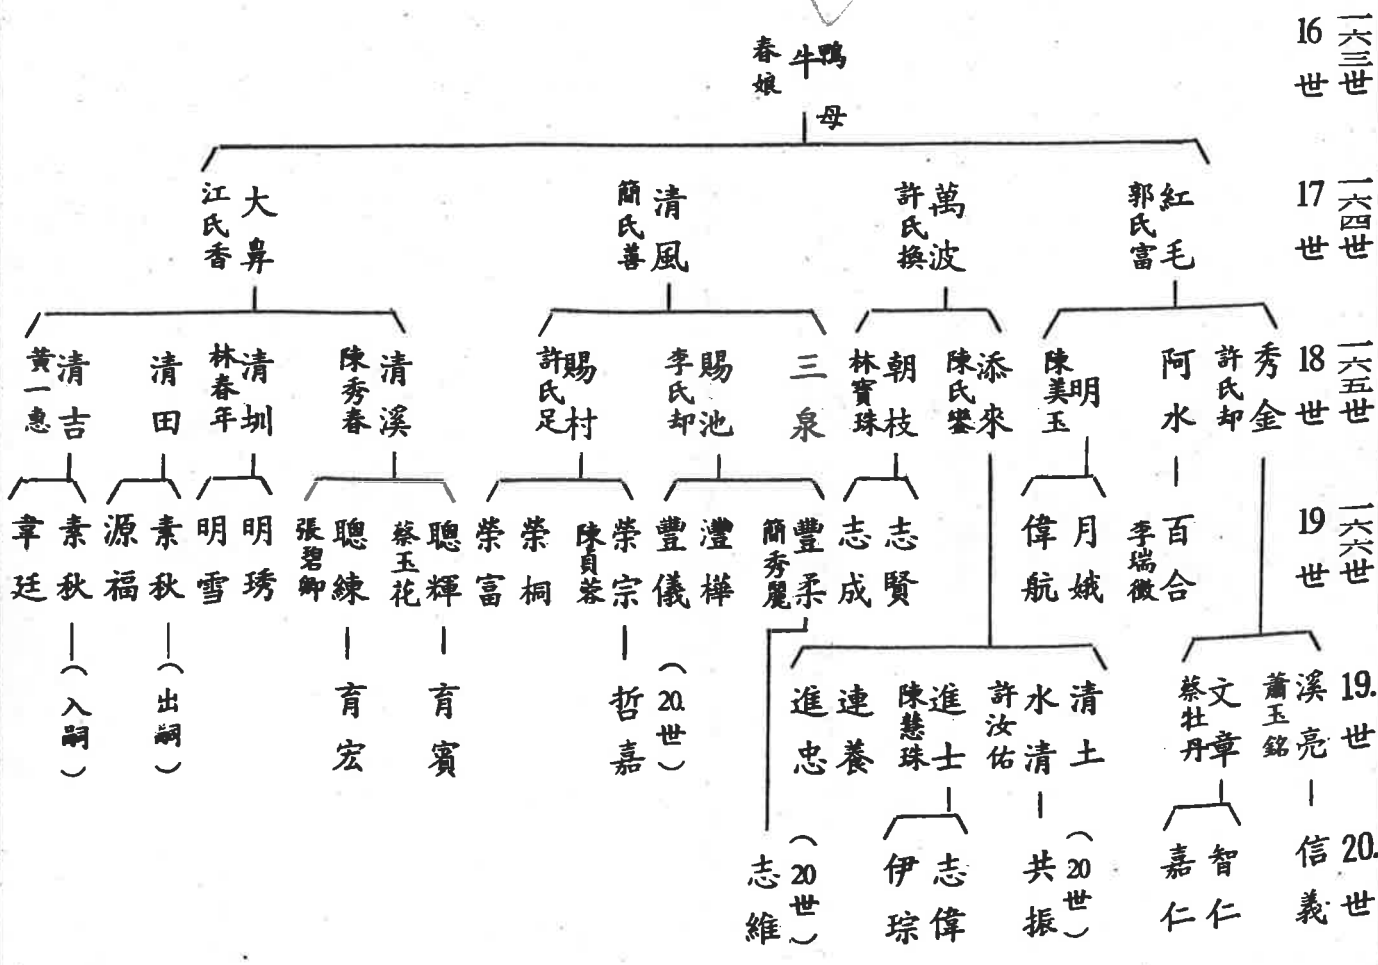 16世 一六三世
鴨母
牛
春娘
17世 一六四世
紅毛
郭氏富
萬波
許氏換
清風
簡氏善
大鼻
江氏香
18世 一六五世
秀金
許氏却
阿水
明
陳美玉
添來
陳氏鑾
朝枝
林寶珠
三泉
賜池
李氏却
賜村
許氏足
清溪
陳秀春
清圳
林春年
清田
清吉
黃一惠
19世 一六六世
百合
李瑞微
月娥
偉航
志賢
志成
豐柔
簡秀麗
灃樺
豐儀
榮宗
陳貞蓉
榮桐
榮富
聰輝
蔡玉花
聰練
張碧卿
明琇
明雪
素秋
源福
素秋
韋廷
19.世
溪亮
蕭玉銘
文章
蔡牡丹
清土
水清
許汝佑
進士
陳慧珠
連養
進忠
(20.世)
哲嘉
育賓
育宏
(出嗣)
(入嗣)
20.世
信義
智仁
嘉仁
(20世)
共振
志偉
伊琮
(20世)
志維